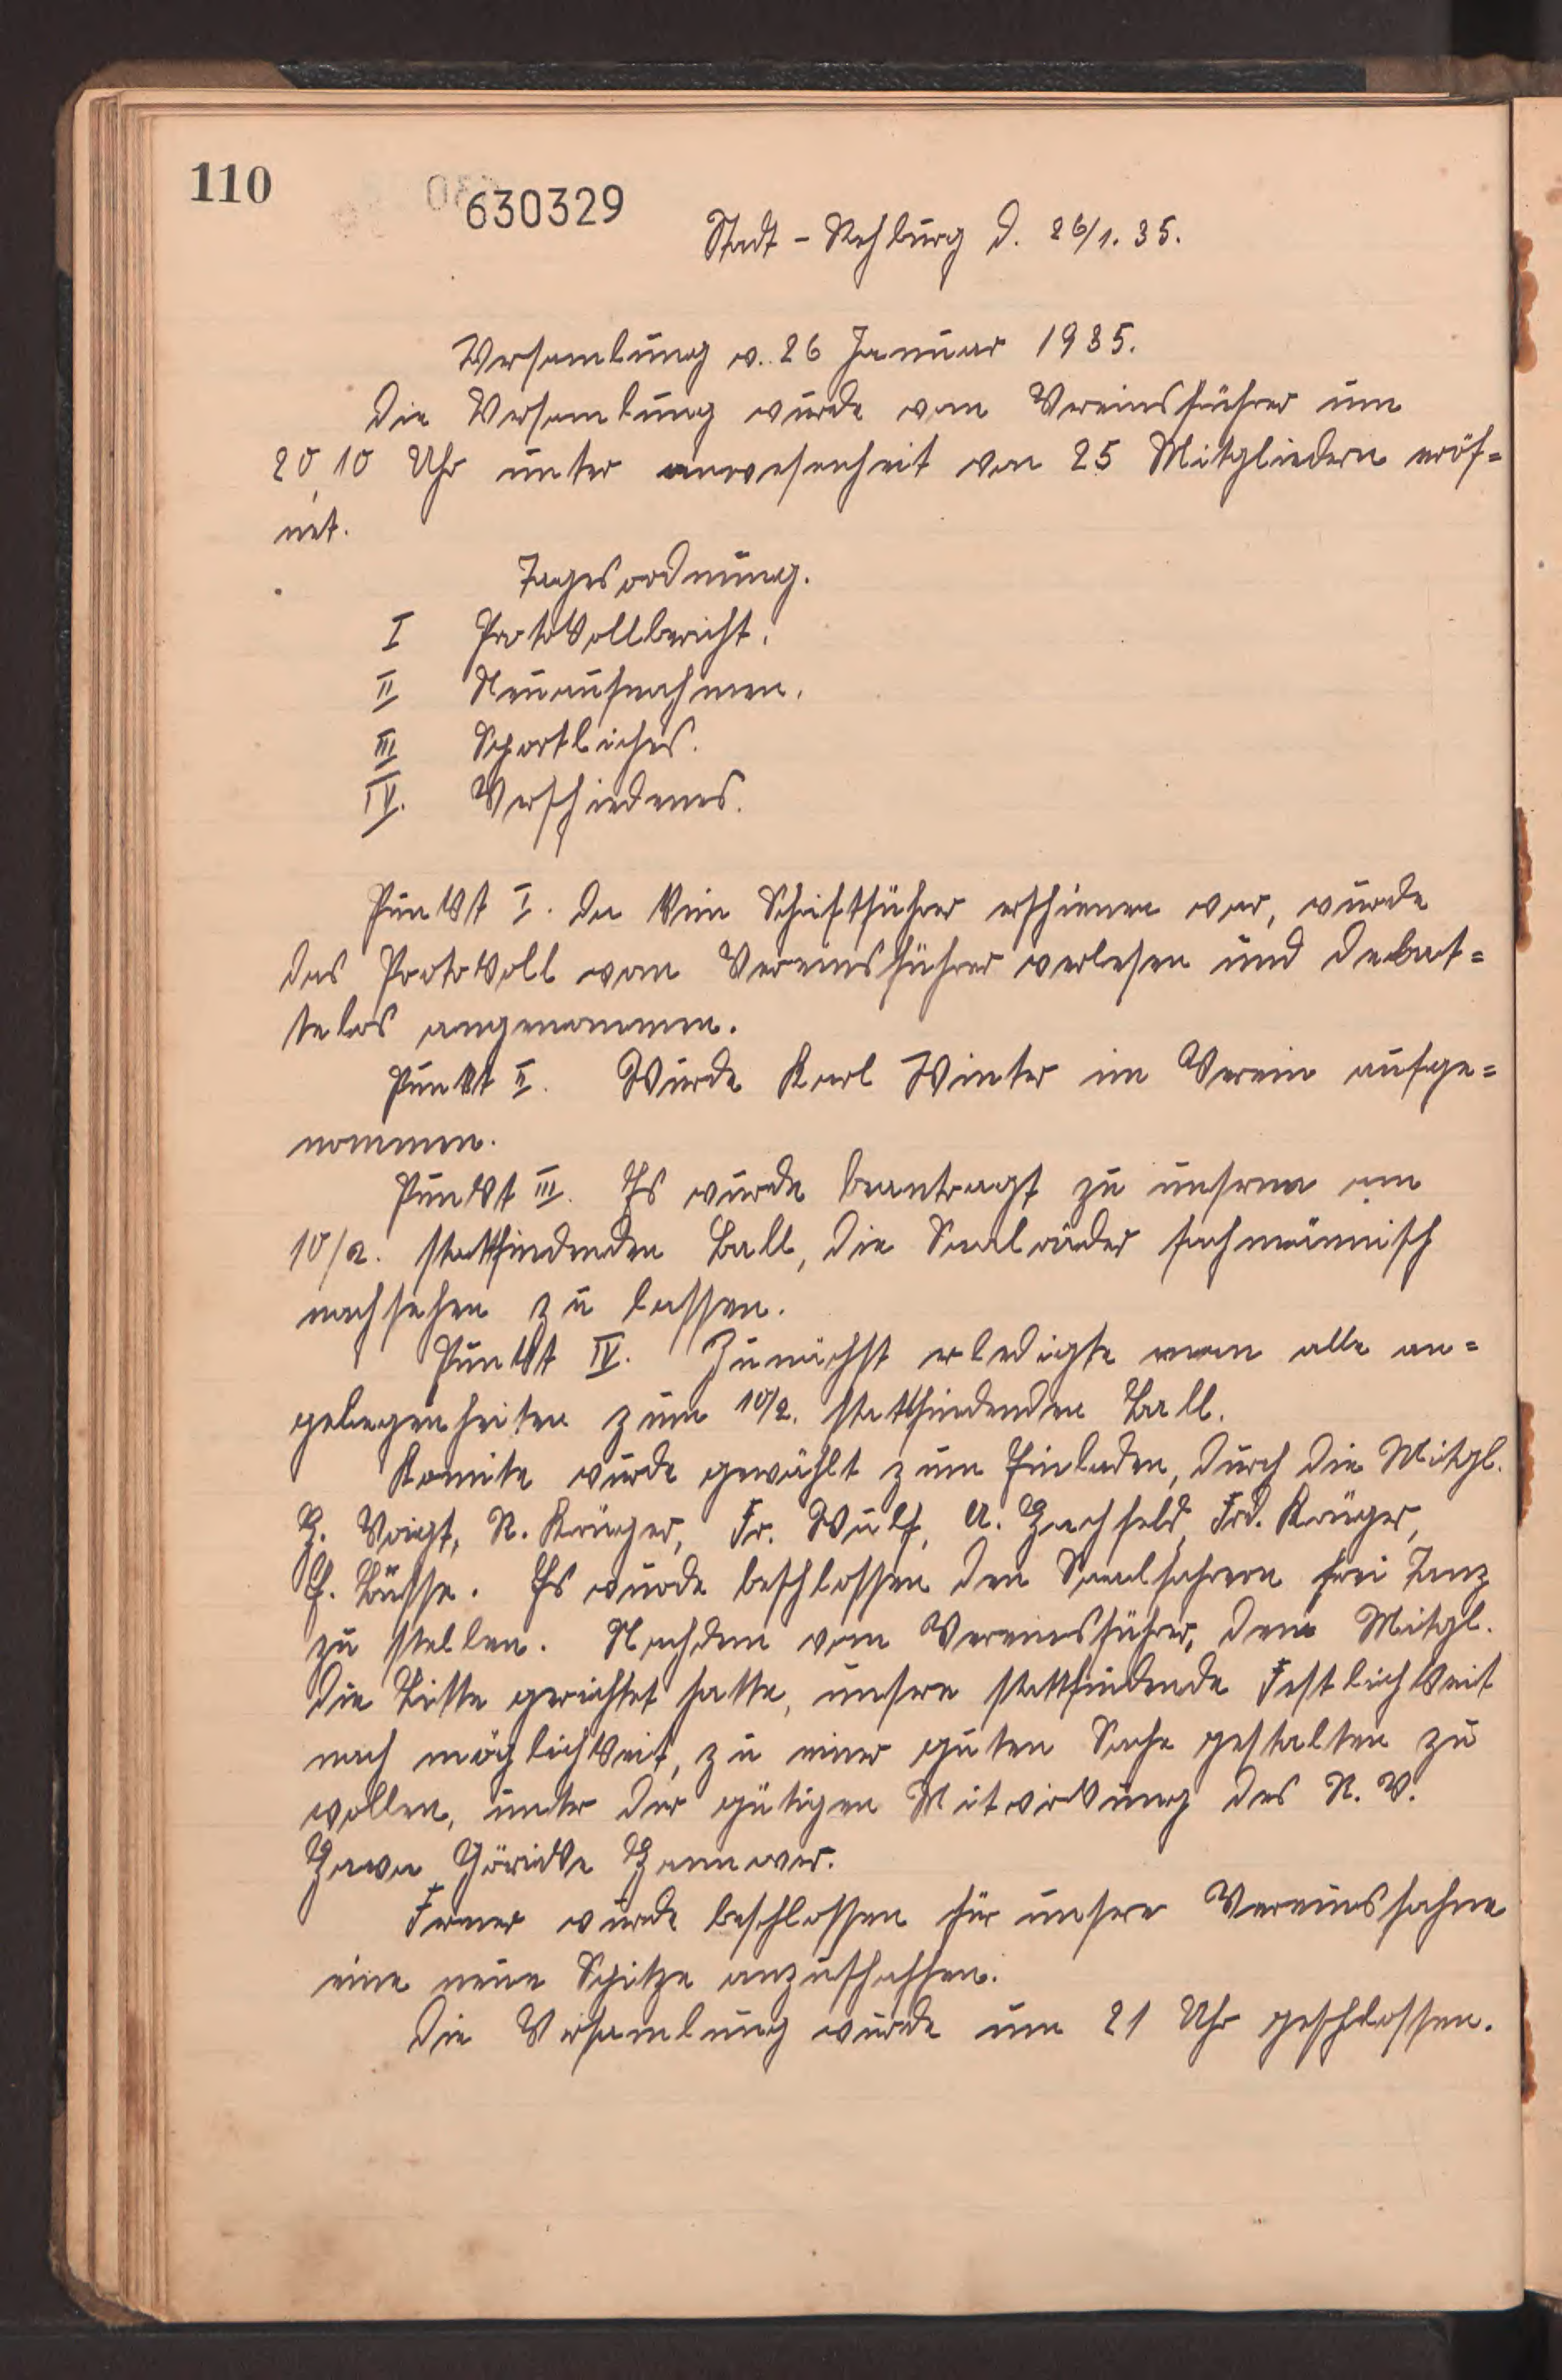 110
630329
Stadt-Rehburg d. 26/1. 35.
Versamlung v. 26 Januar 1935.
Die Versamlung wurde vom Vereinsführer um
20,10 Uhr unter anwesenheit von 25 Mitgliedern eröf=
net.
Tagesordnung.
I Protokollbericht.
II Neuaufnahmen.
III Sportliches.
IV. Verschiedenes.
Punkt I. Da kein Schiftführer erschienen war, wurde
das Protokoll vom Vereinsführer verlesen und debat=
telos angenommen.
Punkt II. Wurde Karl Winter im Verein aufge=
nommen.
Punkt III. Es wurde beantragt zu unserm am
10/2. stattfindenden Ball, die Saalräder fachmännisch
nachsehen zu lassen.
Punkt IV. Zunächst erledigte man alle an=
gelegenheiten zum 10/2. stattfindenden Ball.
Komite wurde gewählt zum Einladen, durch die Mitgl.
H. Voigt, R. Krüger, Fr. Wulf, A. Hachfeld, Frd. Krüger,
E. Busse. Es wurde beschlossen den Saalfahrern frei Tanz
zu stellen. Nachdem vom Vereinsführer, dem Mitgl.
die Bitte gerichtet hatte, unsere stattfindende Festlichkeit
nach möglichkeit, zu einer guten Sache gestalten zu
wollen, unter der gütigen Mitwirkung des R. V.
Hawa Göricke Hannover.
Ferner wurde beschlossen für unsere Vereinsfahne
eine neue Spitze anzuschaffen.
Die Versamlung wurde um 21 Uhr geschlossen.